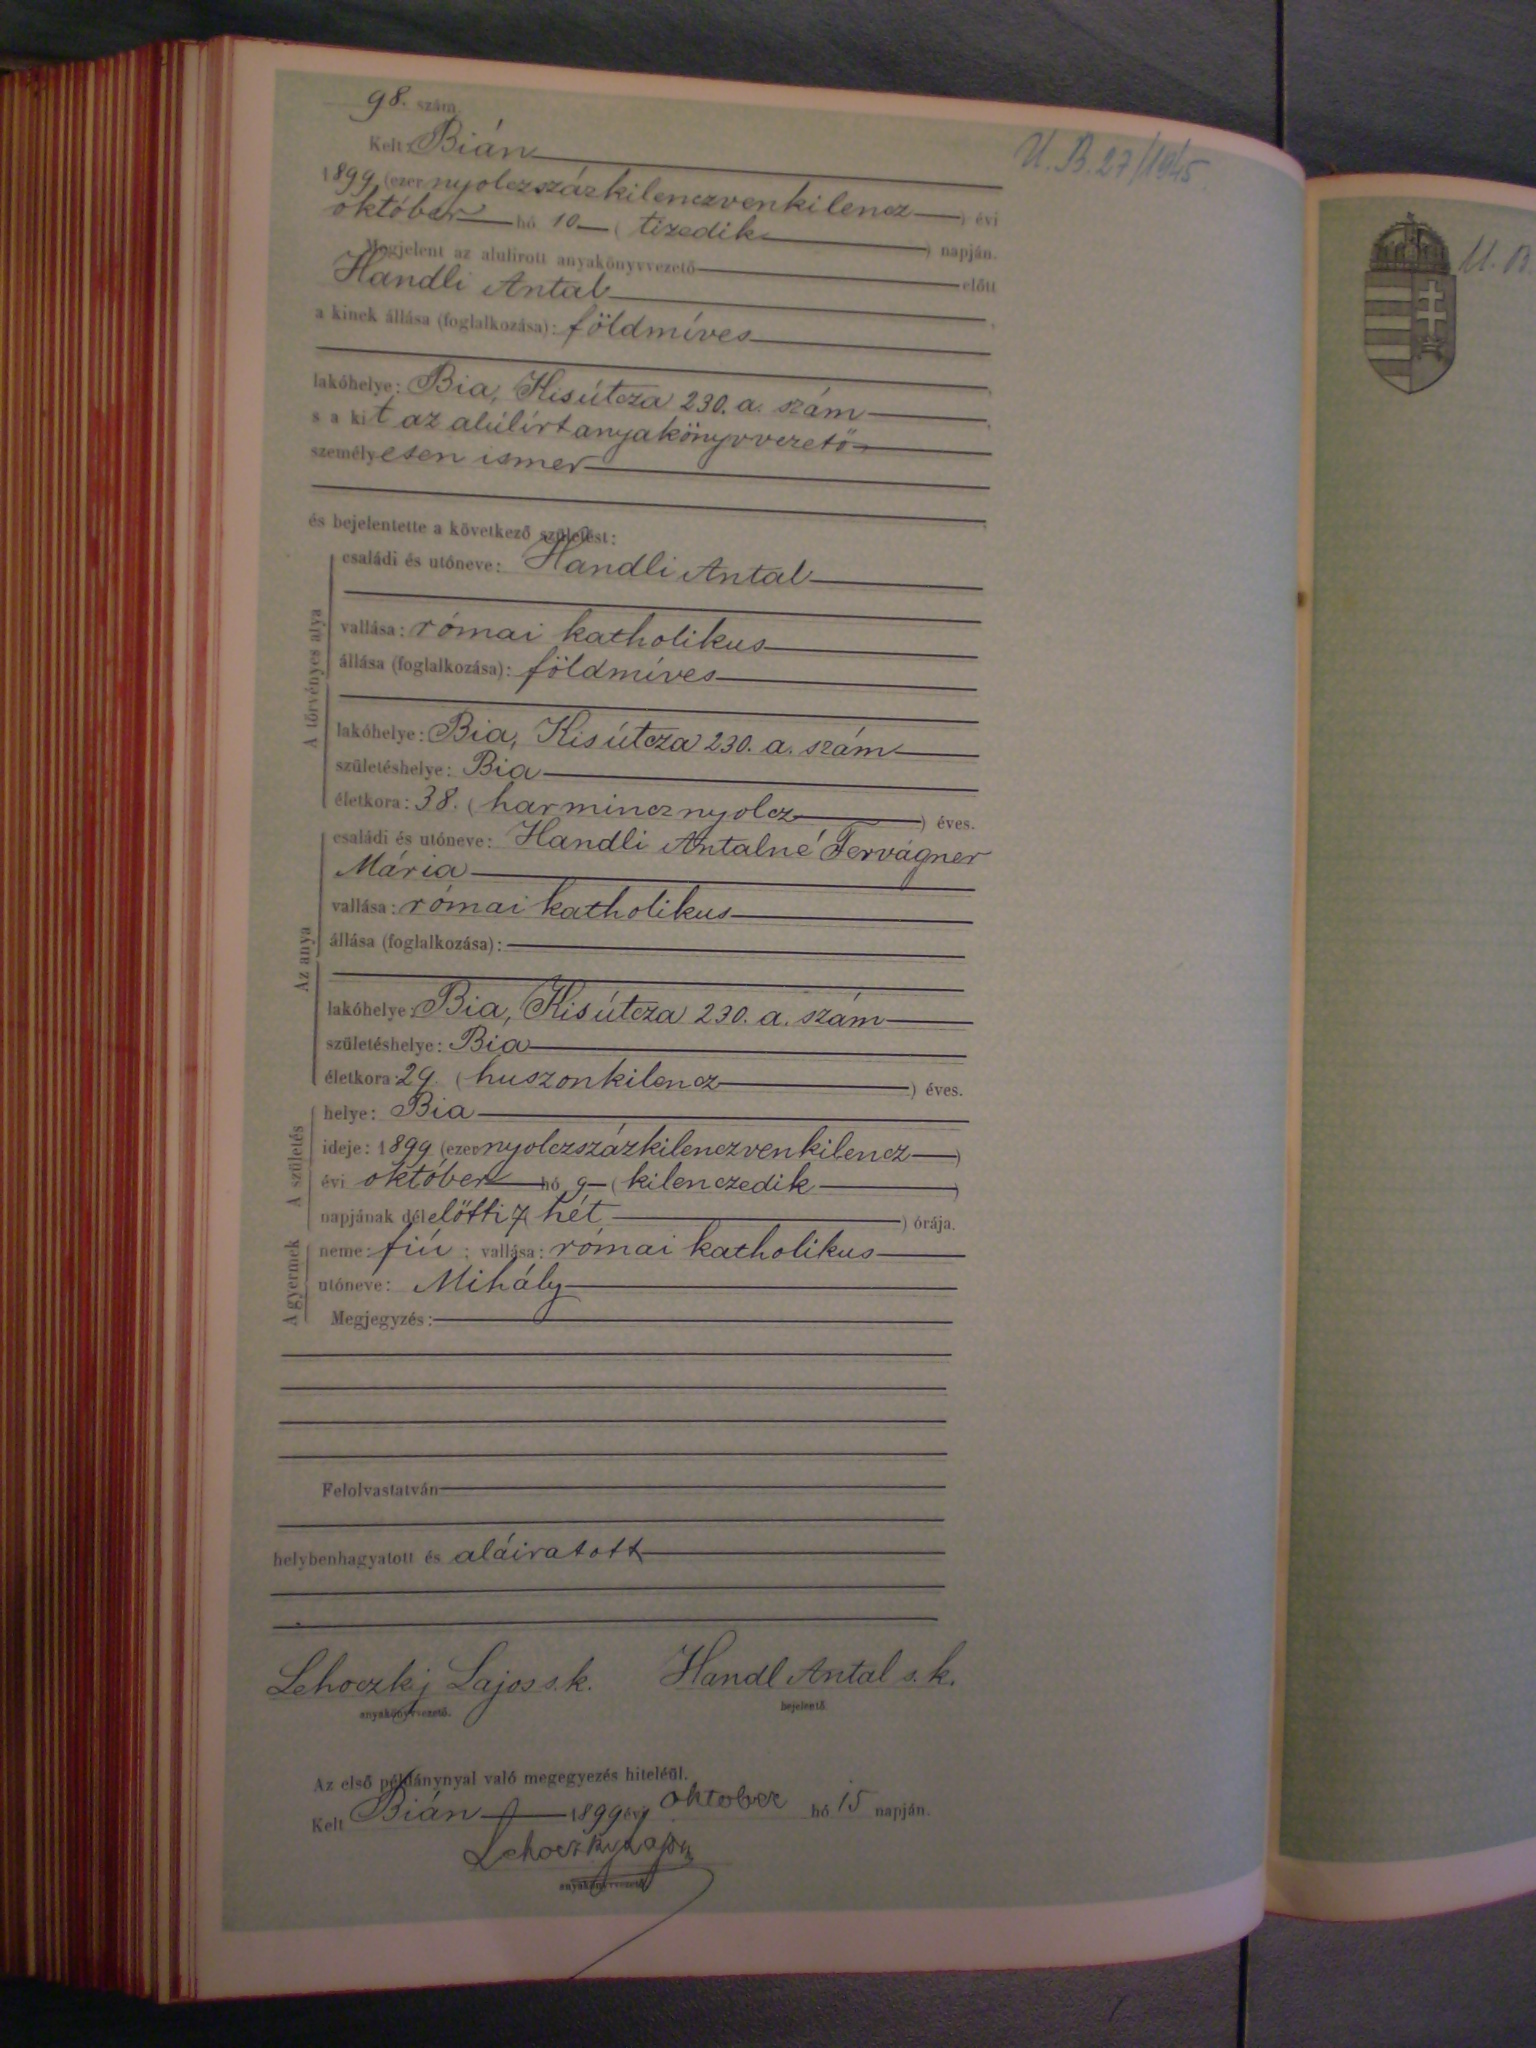 98. szám
U. B. 27/1945.
Kelt: Bián
1899 (ezernyolczszázkilenczvenkilencz) évi
október hó 10 (tizedik) napján.
Megjelent az alulirott anyakönyvvezető előtt
Handli Antal,
a kinek állása (foglalkozása): földmíves
lakóhelye: Bia, Kisútcza 230. a. szám,
s a kit az alúlírt anyakönyvvezető
személyesen ismer
és bejelentette a következő születést:
A törvényes atya
családi és utóneve: Handli Antal
vallása: római katholikus
állása (foglalkozása): földmíves
lakóhelye: Bia, Kisútcza 230. a. szám
születéshelye: Bia
életkora: 38. (harmincznyolcz) éves.
Az anya
családi és utóneve: Handli Antalné Fervágner
Mária
vallása: római katholikus
állása (foglalkozása):
lakóhelye: Bia, Kisútcza 230. a. szám
születéshelye: Bia
életkora: 29 (huszonkilencz) éves.
A születés
helye: Bia
ideje: 1899 (ezernyolczszázkilenczvenkilencz)
évi október hó 9 (kilenczedik)
napjának délelőtti 7 (hét) órája.
A gyermek
neme: fiú; vallása: római katholikus
utóneve: Mihály
Megjegyzés:
Felolvastatván
helybenhagyatott és aláiratott
Lehoczky Lajos s.k. Handl Antal s.k.
anyakönyvvezető. bejelentő.
Az első példánynyal való megegyezés hiteléül.
Kelt Bián 1899 évi oktober hó 15 napján.
Lehoczky Lajos
anyakönyvvezető
U. B.